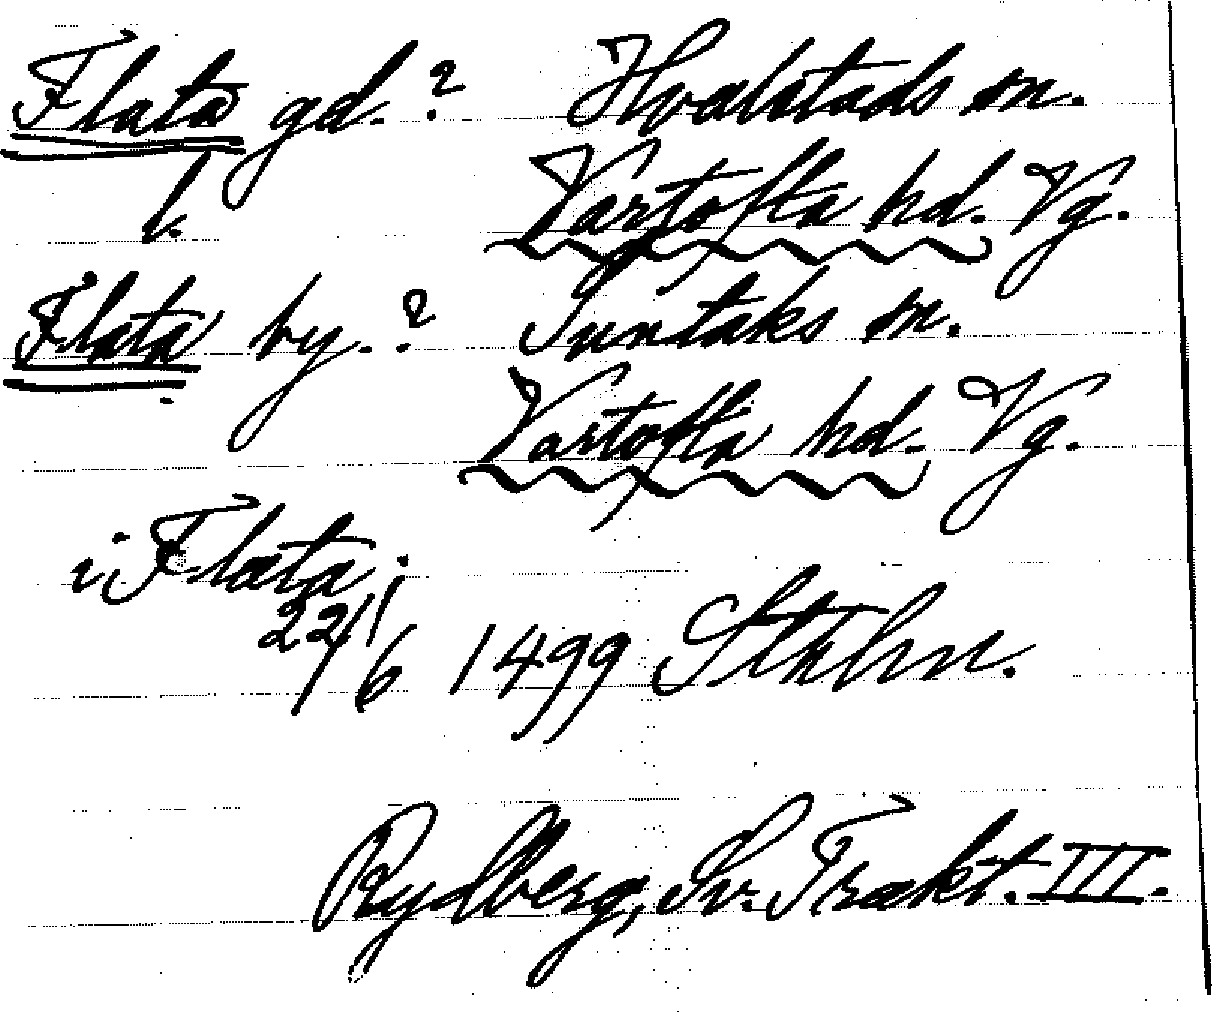 Flata gd.? Hvalstads sn.
l. Vartofta hd. Vg.
Flata by.? Suntaks sn.
Vartofta hd. Vg.
i Flata;
22/6 1499 Sthlm.
Rydberg, Sv. Trakt. III.